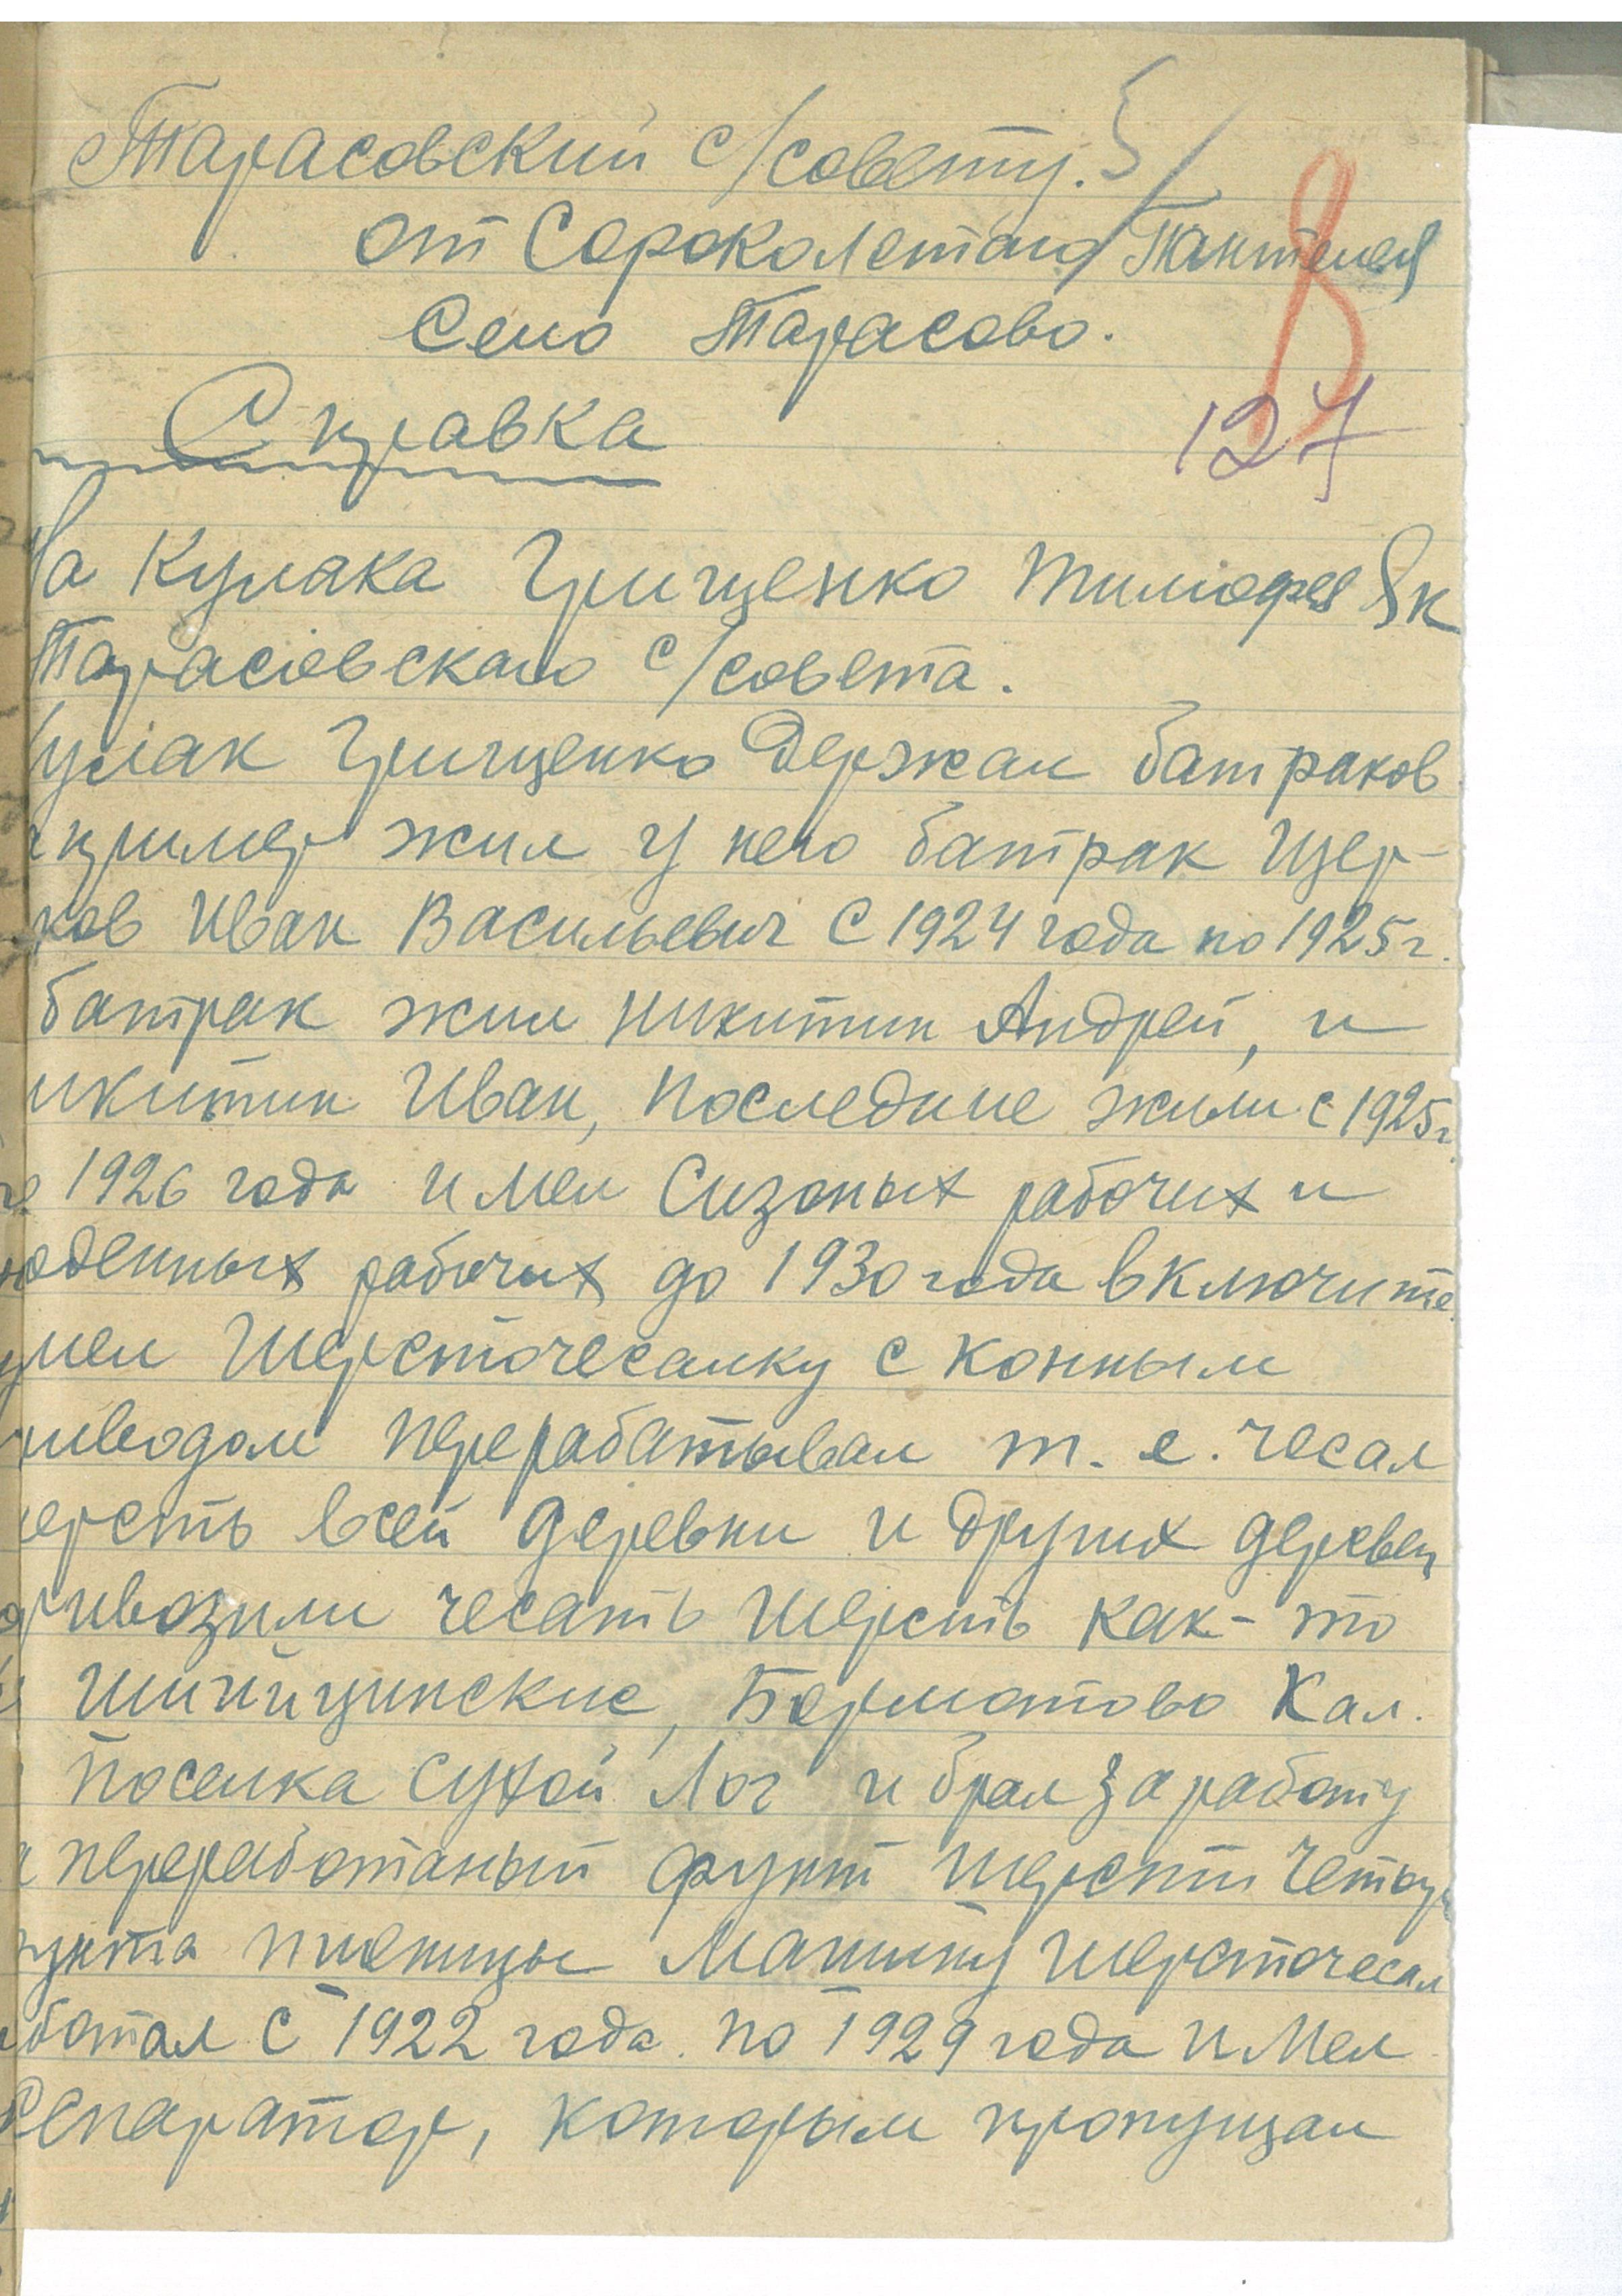 Тарасовский с/совету.
от Сороколетаго Пантелея
Село Тарасово.
8
127
Справка
На Кулака Грищенко Тимофея Як
Тарасовскаго с/совета.
Кулак Грищенко Держал батраков
пример жил у него батрак Щер-
ков Иван Васильевич С 1924 года по 1925 г.
батрак жил Никитин Андрей, и
икитин Иван, последние жили с 1925 г.
1926 года имел Сизоных рабочих и
оденных рабочих до 1930 года включите
имел Шерсточесалку с конным
риводом перерабатывал т. е. чесал
ерсть всей деревни и других деревен
ривозили чесать шерсть как-то
Борматово Кал.
Поселка Сухой Лог и брал за работу
переработаный фунт шерсти четыр
унта пшеницы Машину шерсточесал
ботал с 1922 года по 1929 года имел
Сепаратор, которым пропущал